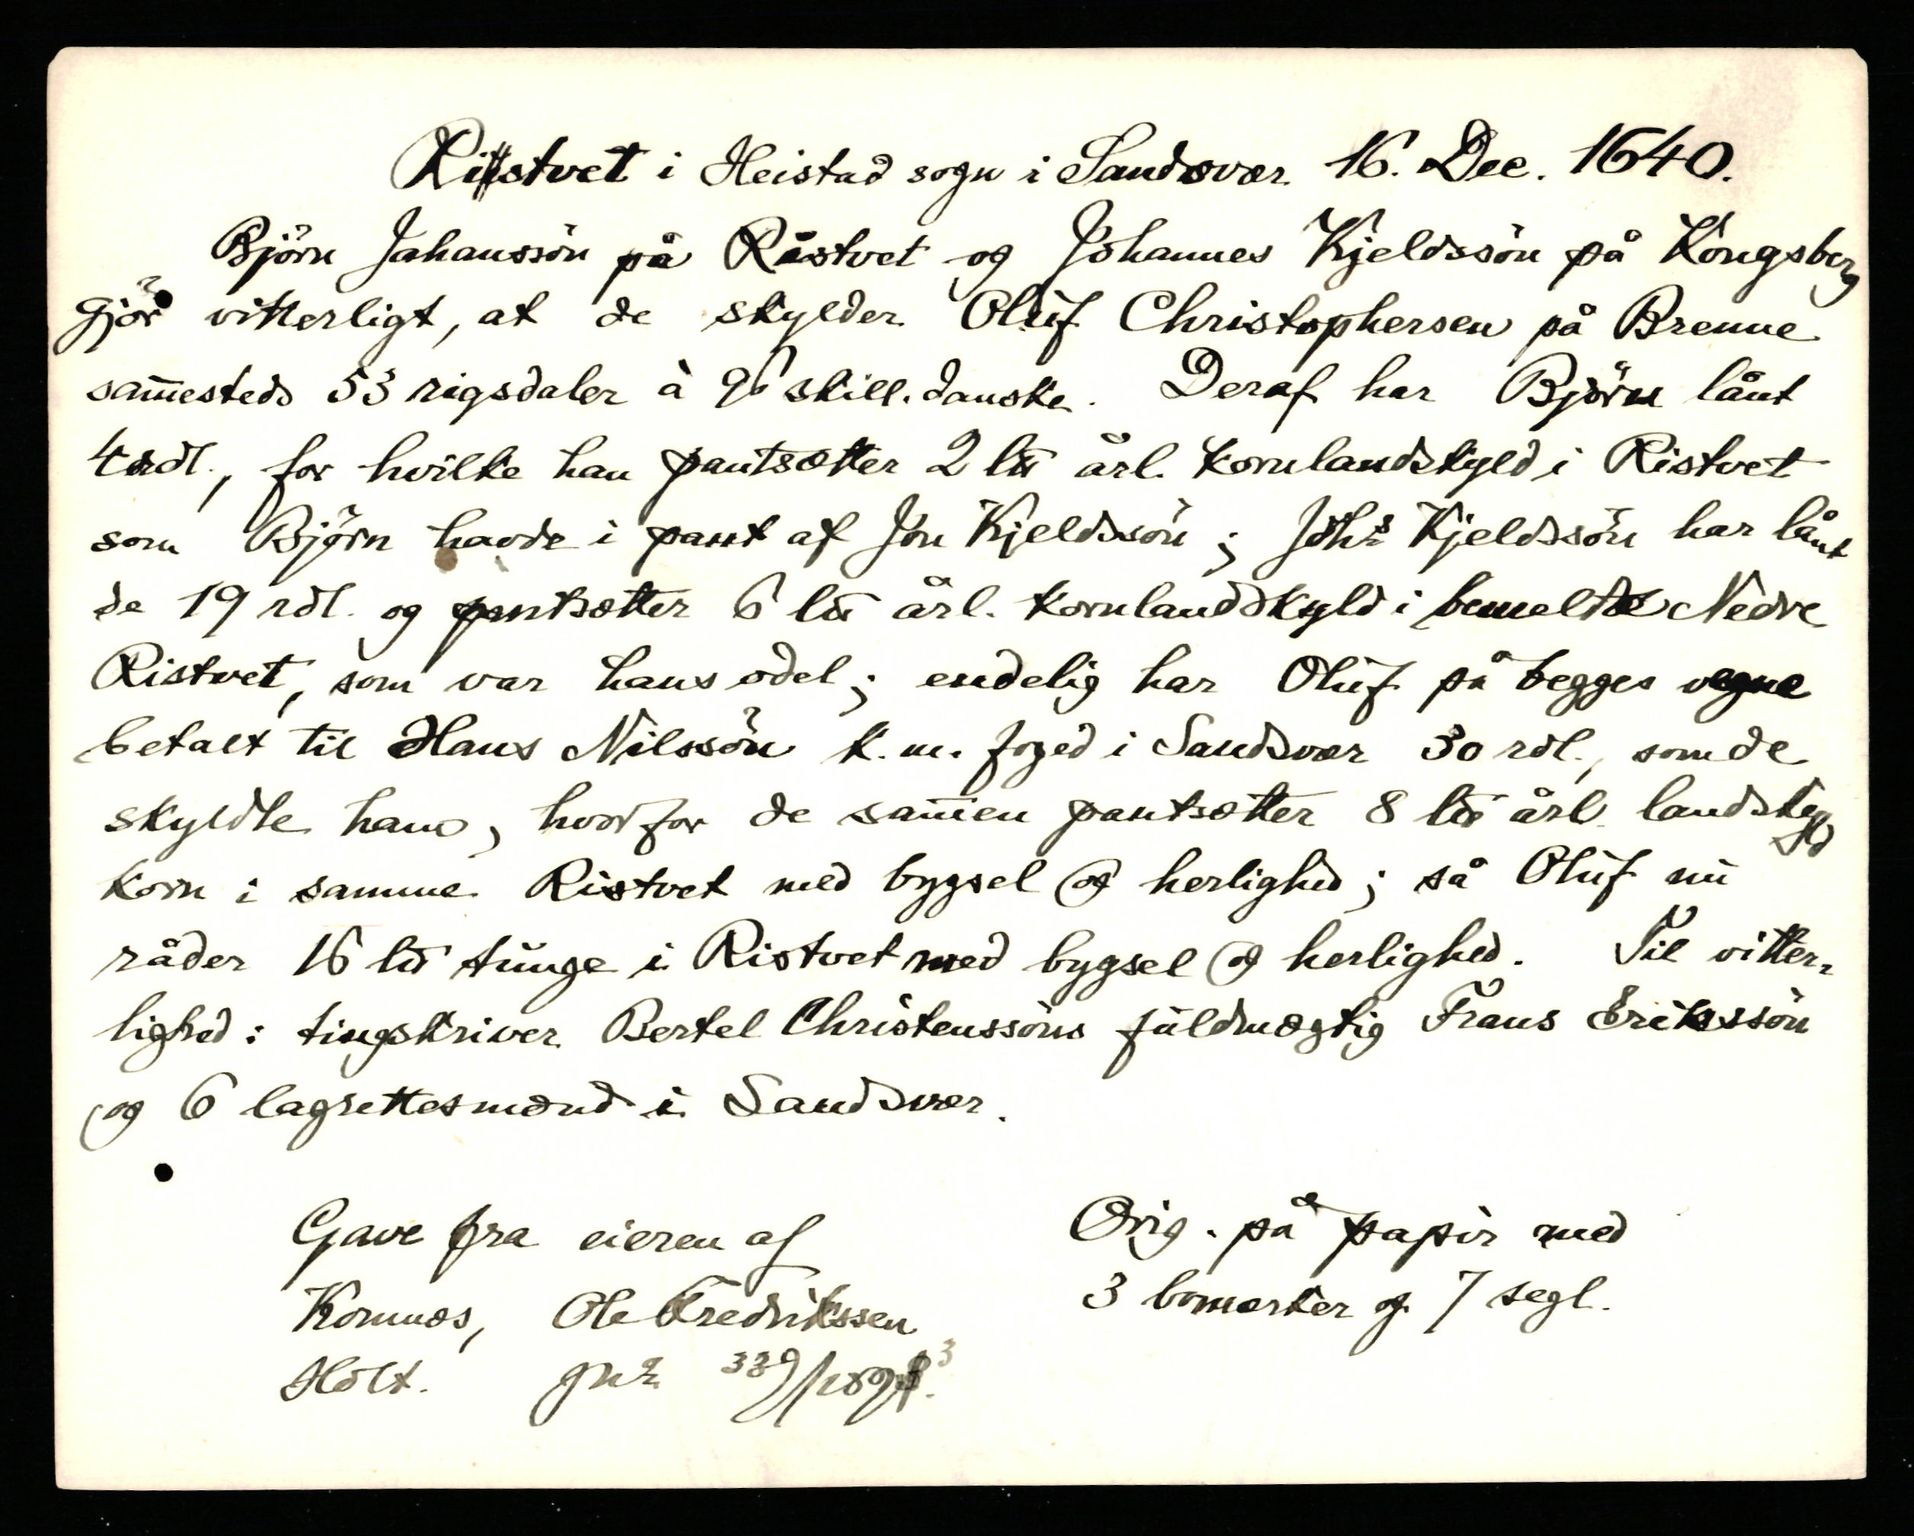 Ristvet i Heistad sogn i Sandsvær 16. Dec. 1640.
Björn Jahanssön på Råstvet og Johannes Kjeldssön på Kongsberg
gjör vitterligt, at de skylder Oluf Christophersen på Brenne
sam̄esteds 53 rigsdaler à 96 skill. danske. Deraf har Björn lånt
4 rdl., for hvilke han pantsætter 2 lħ årl. kornlandskyld i Ristvet
som Björn havde i pant af Jon Kjeldssön; Johs Kjeldssön har lånt
de 19 rdl. og pantsætter 6 lħ årl. kornlandskyld i bemeldte Nedre
Ristvet, som var hans odel; endelig har Oluf på begges vegne
betalt til Hans Nilssön k. m. foged i Sandsvær 30 rdl., som de
skyldte ham, hvorfor de sam̄en pantsætter 8 lħ årl. landskyld
korn i samme Ristvet med bygsel og herlighed; så Oluf nu
råder 16 lħ tunge i Ristvet med bygsel og herlighed. Til vitter-
lighed: tingskriver Bertel Christenssöns fuldmægtig Frans Erikssön
og 6 lagrettesmænd i Sandsvær.
Gave fra eieren af
Komnæs, Ole Fredrikssen
Holt. gnr 339/1893.
Orig. på papir med
3 bomærker og 7 segl.